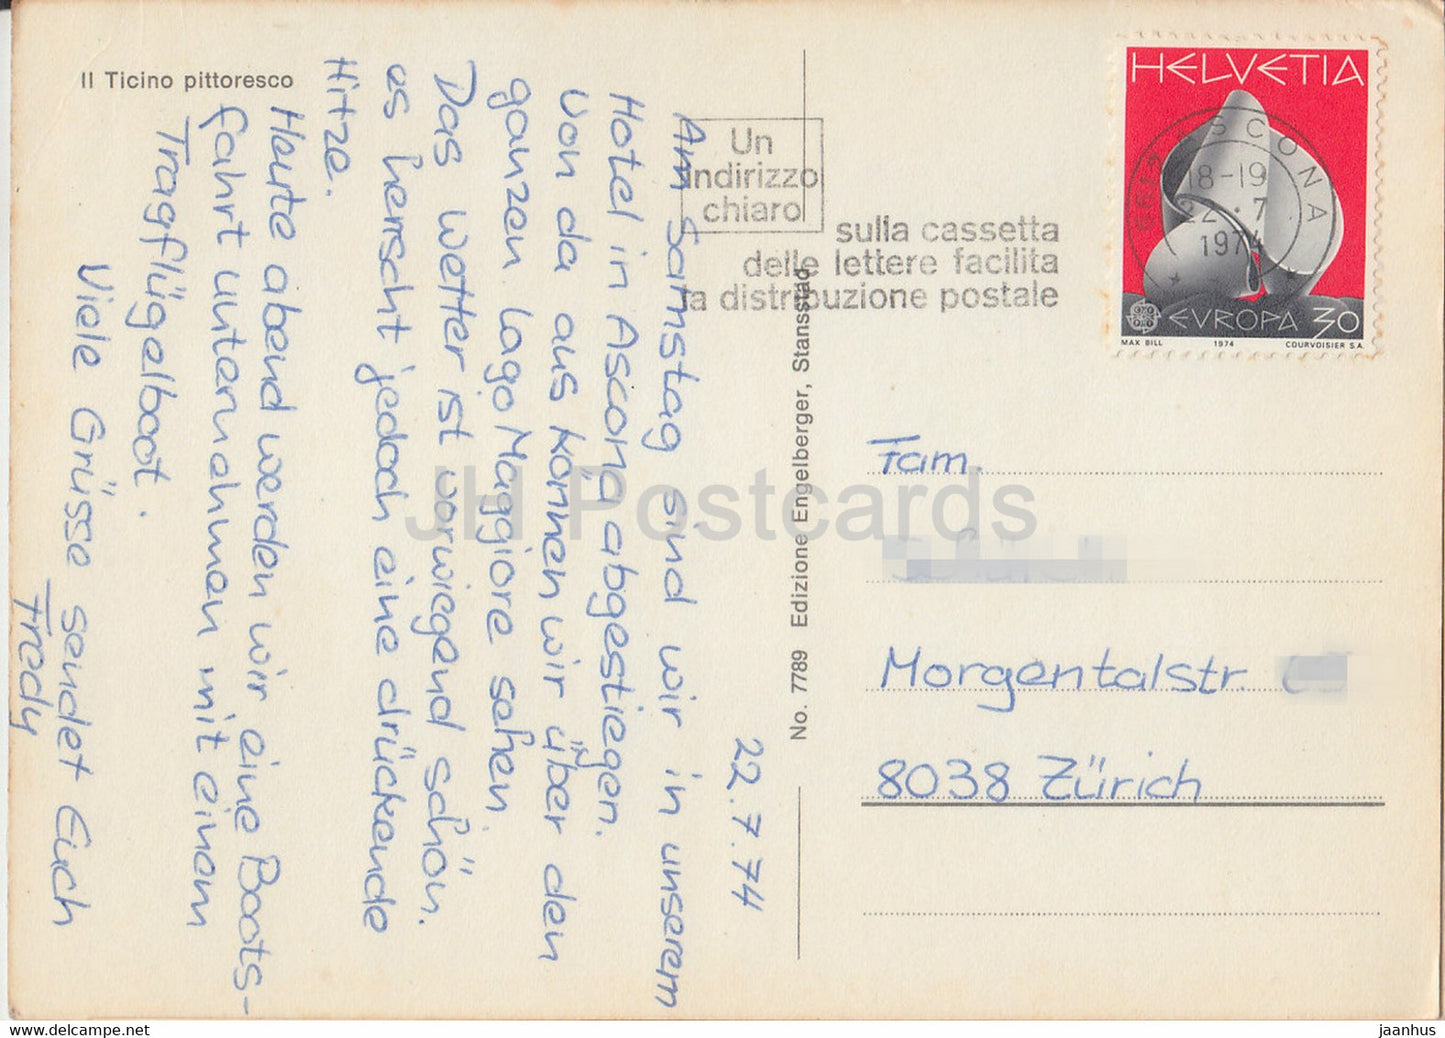 Il Ticino pittoresco
22.7.74
Am Samstag sind wir in unserem
Hotel in Ascona abgestiegen.
Von da aus können wir über den
ganzen Lago Maggiore sehen.
Das Wetter ist vorwiegend schön.
es herrscht jedoch eine drückende
Hitze.
Heute abend werden wir eine Boots-
fahrt unternehmen mit einem
Tragflügelboot.
Viele Grüsse sendet Euch
Fredy
No. 7789 Edizione Engelberger, Stansstad
Un
indirizzo
chiaro
sulla cassetta
delle lettere facilita
la distribuzione postale
HELVETIA
6612 ASCONA
18-19
22.7.
1974
EUROPA 30
MAX BILL 1974 COURVOISIER S.A.
Fam.
Morgentalstr.
8038 Zürich
JH Postcards
www.hippostcard.com
jaanhus